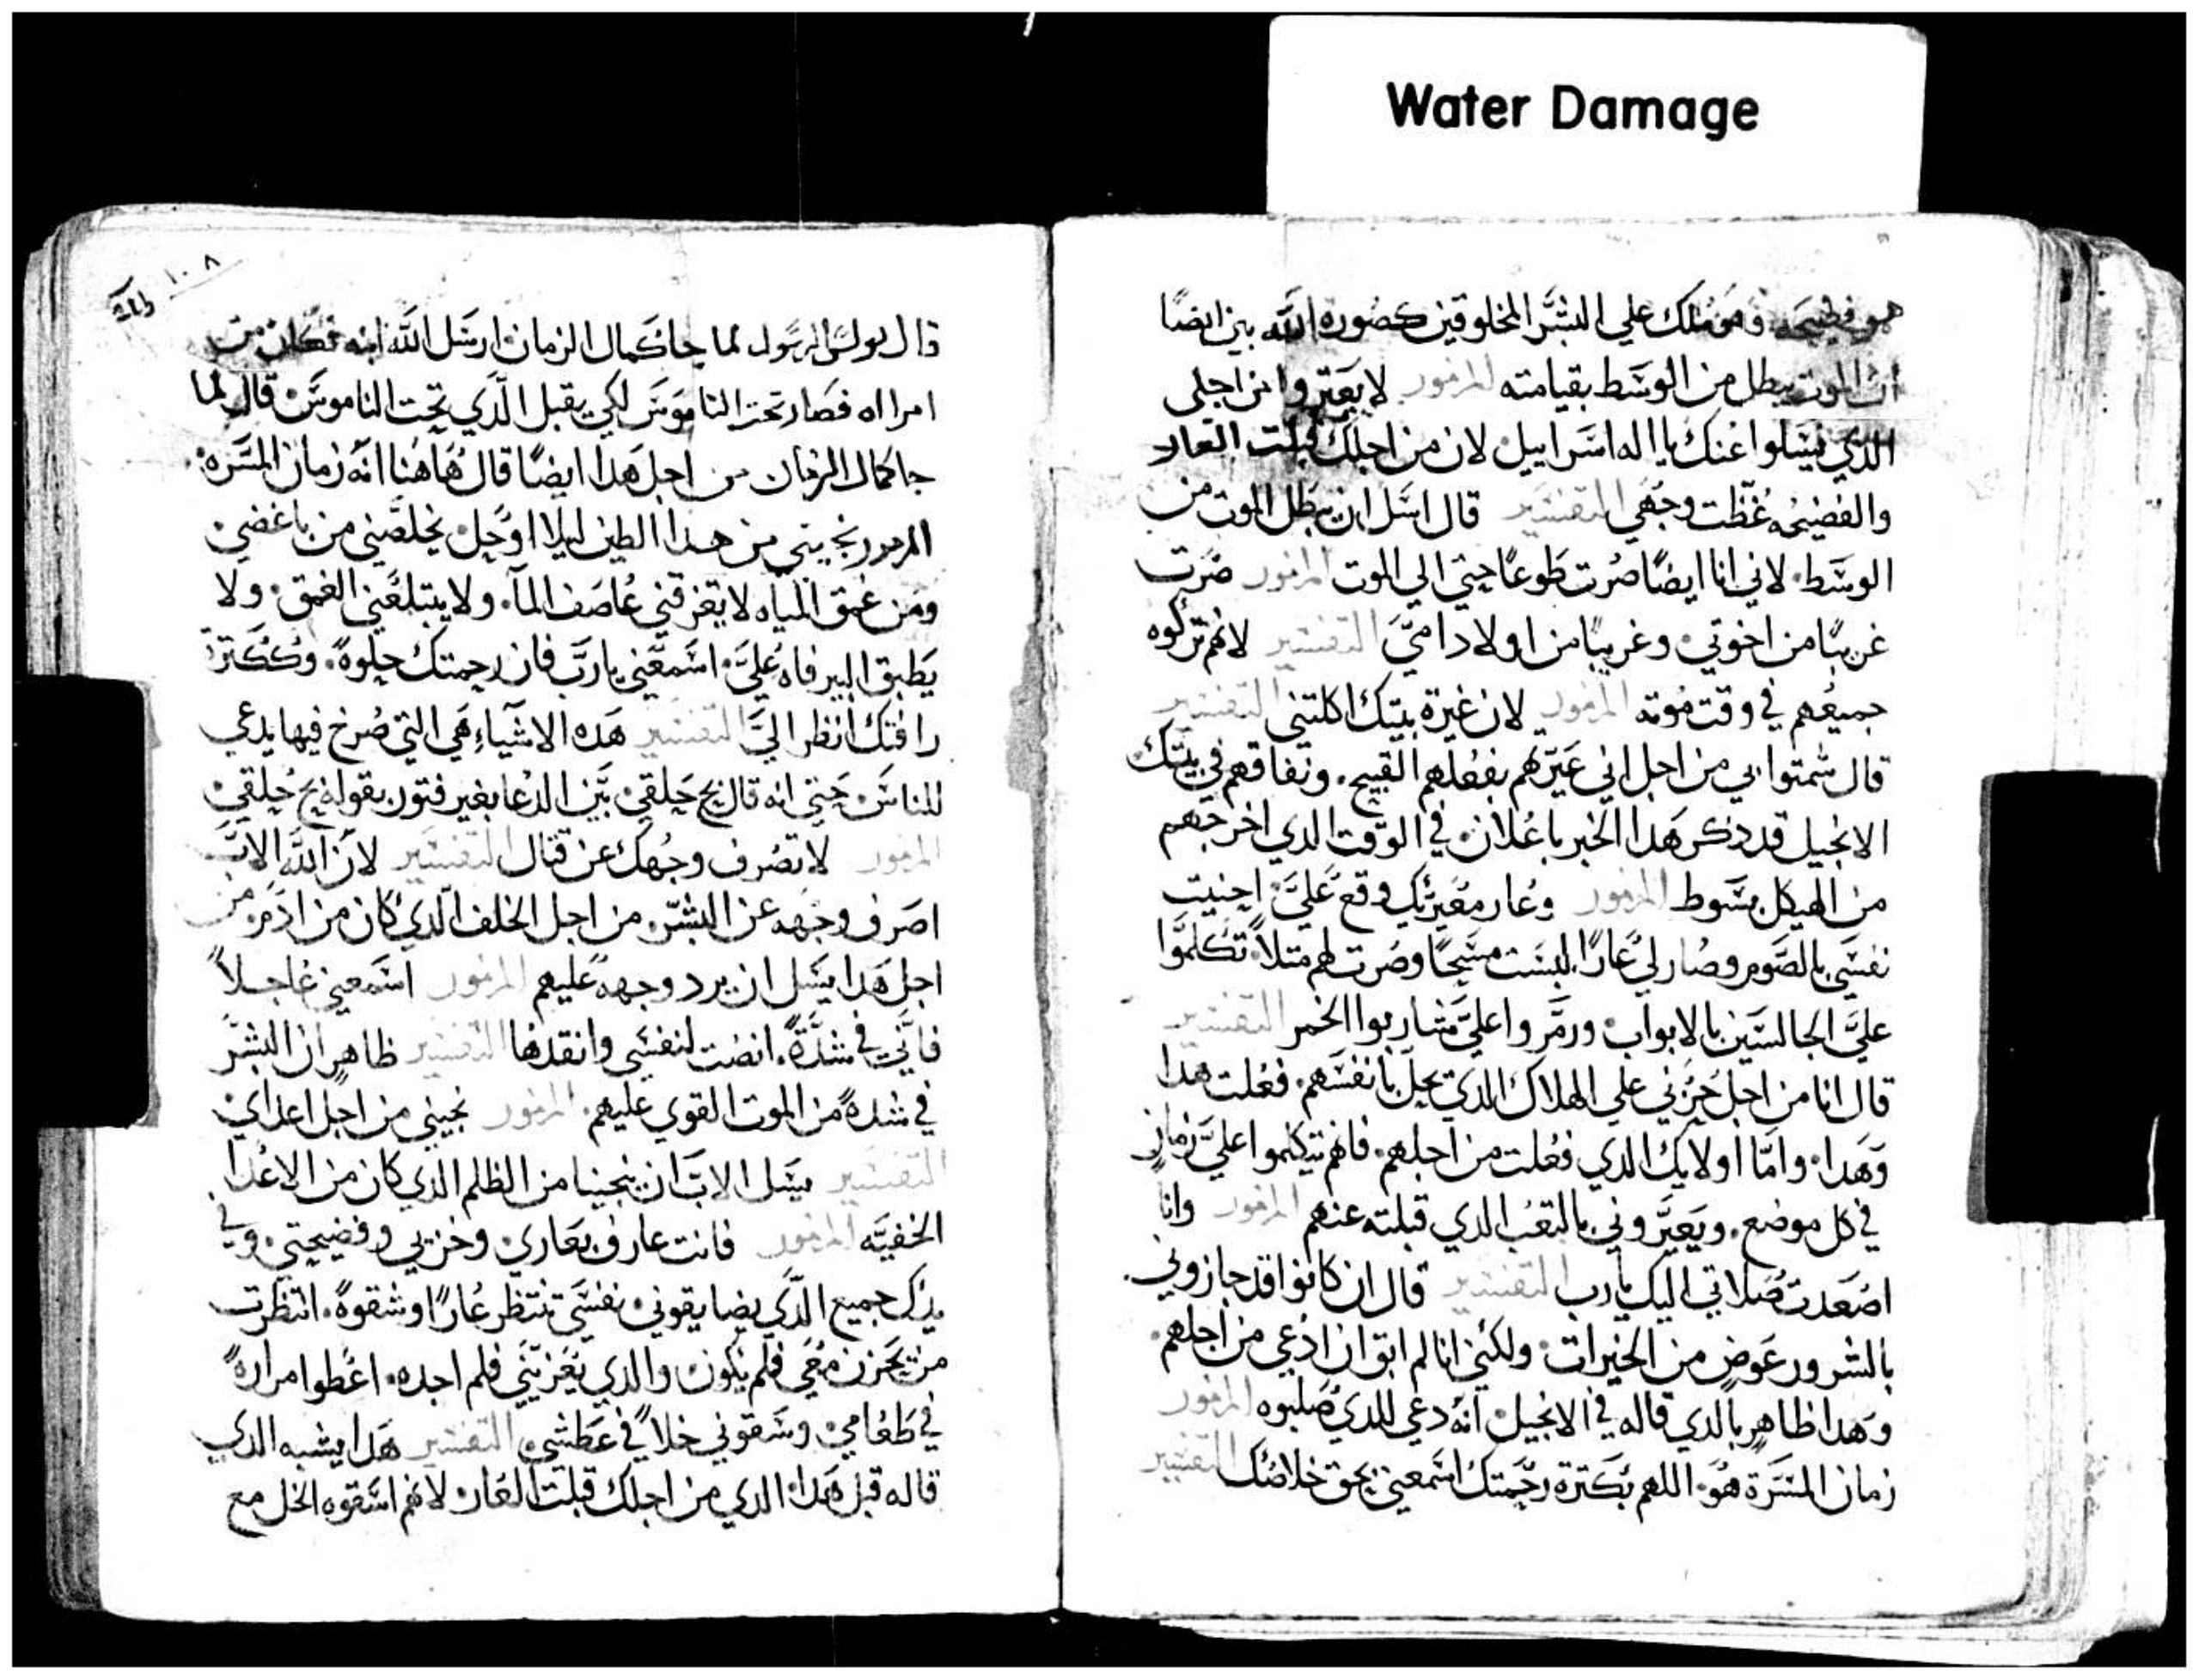 Water Damage
هو فضيحه وتملك علي البشر المخلوقين كصورة الله بين ايضًا
ان الموت يبطل من الوسط بقيامته المزمور لا يعتروا من اجلي
الذي يسلوا عنك يا اله اسراييل لان من اجلك قبلت العار
والفضيحه غطت وجهي التفسير قال اسل ان يبطل الموت من
الوسط لاني انا ايضًا صرت طوعًا حتي الي الموت المزمور صرت
غريبًا من اخوتي وغريبًا من اولاد امي التفسير لانهم تركوه
جميعهم في وقت موته المزمور لان غيرة بيتك اكلتني التفسير
قال شمتوا بي من اجل اني عيرتهم بفعلهم القبيح ونفاقهم في بيتك
الانجيل قد ذكر هدا الخبر باعلان في الوقت الدي اخرجهم
من الهيكل بسوط المزمور وعار معيريك وقع علي احنيت
نفسي بالصوم وصار لي عارًا لبست مسحًا وصرت لهم متلًا تكلموا
علي الجالسين بالابواب ورمروا علي شاربوا الخمر التفسير
قال انا من اجل حزني علي الهلاك الدي يحل بانفسهم فعلت هدا
وهدا واما اولايك الدي فعلت من اجلهم فانهم تيكلموا علي زمان
في كل موضع ويعيروني بالتعب الدي قبلته عنهم المزمور وانا
اصعدت صلاتي اليك يا رب التفسير قال ان كانوا قد جازوني
بالشرور عوض من الخيرات ولكني انا لم ابق ان ادعي من اجلهم
وهدا ظاهر بالدي قاله في الانجيل انه دعي للدي صلبوه المزمور
زمان المسرة هو اللهم بكترة رحمتك اسمعني بحق خلاصك التفسير
١٠٨
قال بولس الرسول لما جا كمال الزمان ارسل الله ابنه فكان من
امراه فصار تحت الناموس لكي يقبل الدي تحت الناموس قال لما
جا كمال الزمان من اجل هدا ايضًا قال هاهنا انه زمان المسره
المزمور نجيني من هدا الطين ليلا اوحل يخلصني من باغضي
ومن عمق المياه لا يغرقني عاصف الما ولا يبتلعني العمق ولا
يطبق البير فاه علي اسمعني يا رب فان رحمتك حلوة وككترة
رافتك انظر الي التفسير هده الاشياء هي التي صرخ فيها يدعي
للناس حتي انه قال بح حلقي بين الدعا بغير فتور بقوله بح حلقي
المزمور لا تصرف وجهك عن فتاك التفسير لان الله الاب
اصرف وجهه عن البشر من اجل الخلف الدي كان من ادم من
اجل هدا يسل ان يرد وجهه عليهم المزمور اسمعني عاجلًا
فاني في شدة انصت لنفسي وانقدها التفسير ظاهر ان البشر
في شدة من الموت القوي عليهم المزمور نجيني من اجل اعداي
التفسير يسل الاب ان ينجينا من الظلم الدي كان من الاعدا
الخفيه المزمور فانت عارف بعاري وخزيي وفضيحتي وفي
يدك جميع الدي يضايقوني نفسي تنتظر عارًا وشقوة انتظرت
من يحزن معي فلم يكون والدي يعزيني فلم اجده اعطوا مرارة
في طعامي وسقوني خلًا في عطشي التفسير هدا يشبه الدي
قاله قبل هدا الدي من اجلك قبلت العار لانهم اسقوه الخل مع